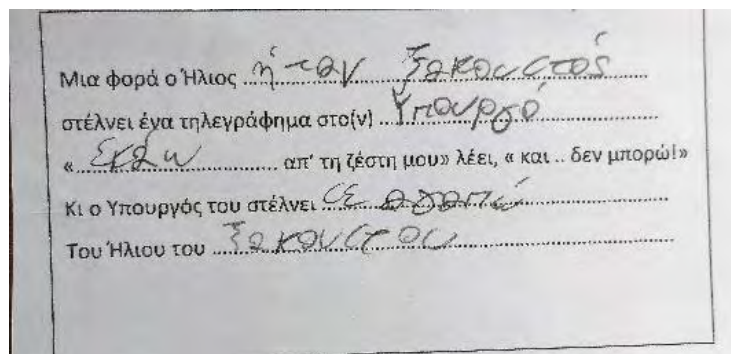 Μια φορά ο Ήλιος ήταν ξακουστός
στέλνει ένα τηλεγράφημα στο(ν) Υπουργό
« Σκάω απ' τη ζέστη μου» λέει, « και .. δεν μπορώ!»
Κι ο Υπουργός του στέλνει σε αγαπώ
Του Ήλιου του ξακουστου